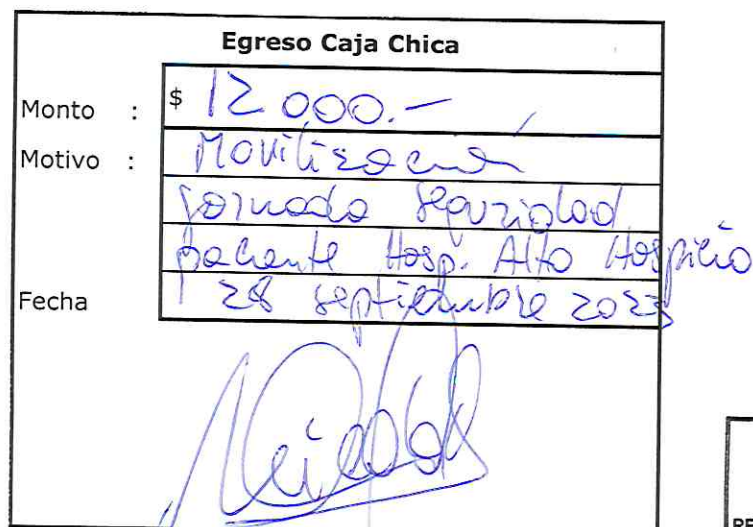 Egreso Caja Chica
Monto : $ 12 000.-
Motivo : Movilización
Jornada seguridad
paciente Hosp. Alto Hospicio
Fecha 28 septiembre 2023